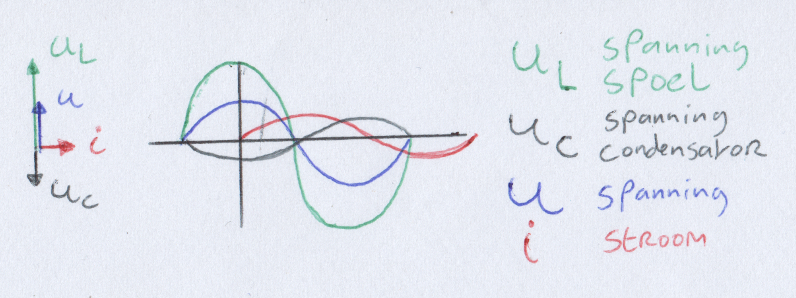 uL
u
i
uc
uL spanning
spoel
uc spanning
condensator
u spanning
i stroom